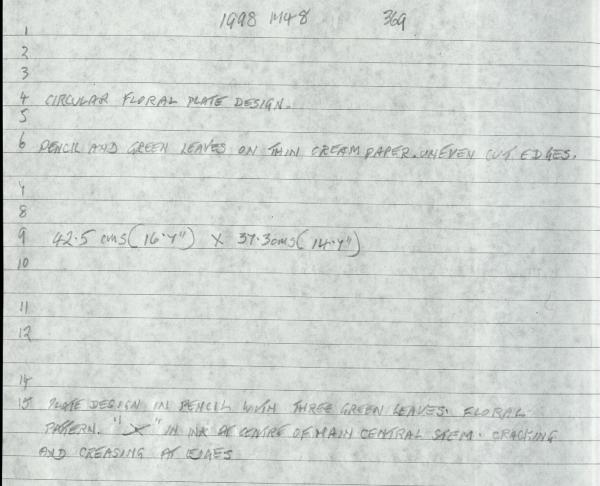 1998 M48 369
1
2
3
4 CIRCULAR FLORAL PLATE DESIGN.
5
6 PENCIL AND GREEN LEAVES ON THIN CREAM PAPER. UNEVEN CUT EDGES.
7
8
9 42.5 cms (16.7") X 37.3 cms (14.7")
10
11
12
14
15 PLATE DESIGN IN PENCIL WITH THREE GREEN LEAVES. FLORAL
PATTERN. "X" IN INK AT CENTRE OF MAIN CENTRAL STEM. CRACKING
AND CREASING AT EDGES